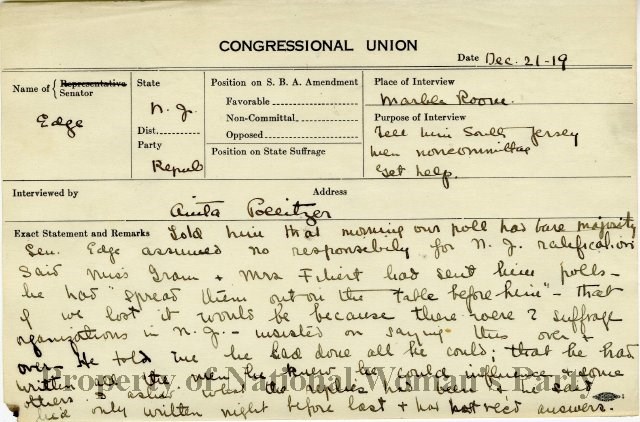 CONGRESSIONAL UNION
Date Dec. 21-19
Name of { Representative Senator
Edge
State
N. J.
Dist.
Party
Repub
Position on S. B. A. Amendment
Favorable
Non-Committal
Opposed
Position on State Suffrage
Place of Interview
Marble Room.
Purpose of Interview
Tell him South Jersey
men noncommittal
Get help.
Interviewed by Anita Pollitzer
Address
Exact Statement and Remarks Told him that morning our poll had bare majority
Sen. Edge assumed no responsibility for N. J. ratification
Said Miss Gram + Mrs Filbert had sent him polls -
he had "spread them out on the table before him" - that
if we lost it would be because there were 2 suffrage
organizations in N. J. - insisted on saying this over +
over. He told me he had done all he could; that he had
written to the men he knew he could influence + some
others I asked what the replies had been + he said
he'd only written night before last + has not rec'd answers.
Property of National Woman's Party